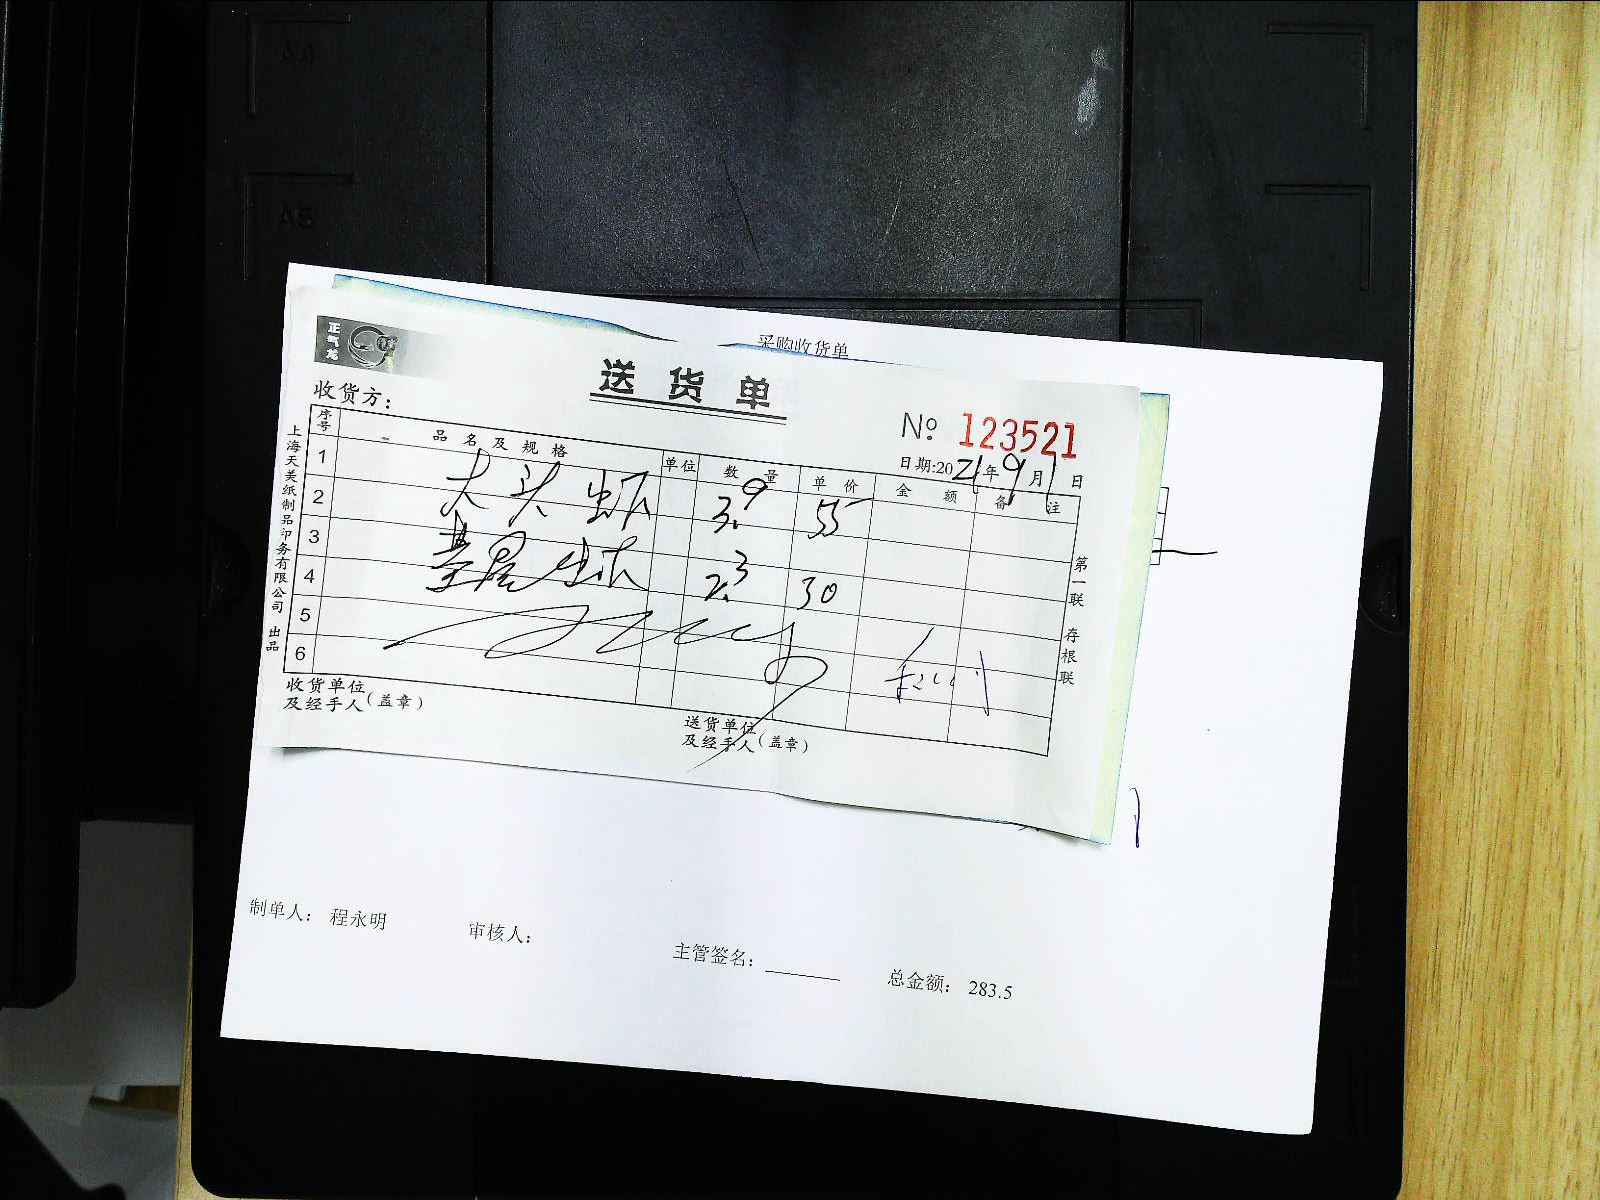 A4
A5
采购收货单
正气龙
送货单
收货方：
No 123521
日期:2021年9月1日
序号 品名及规格 单位 数量 单价 金额 备注
1 大头虾 3.9 55
2
3 虾 2.3 30
4
5
6
上海天美纸制品印务有限公司 出品
第一联 存根联
收货单位
及经手人(盖章)
送货单位
及经手人(盖章)
制单人： 程永明
审核人：
主管签名：
总金额： 283.5